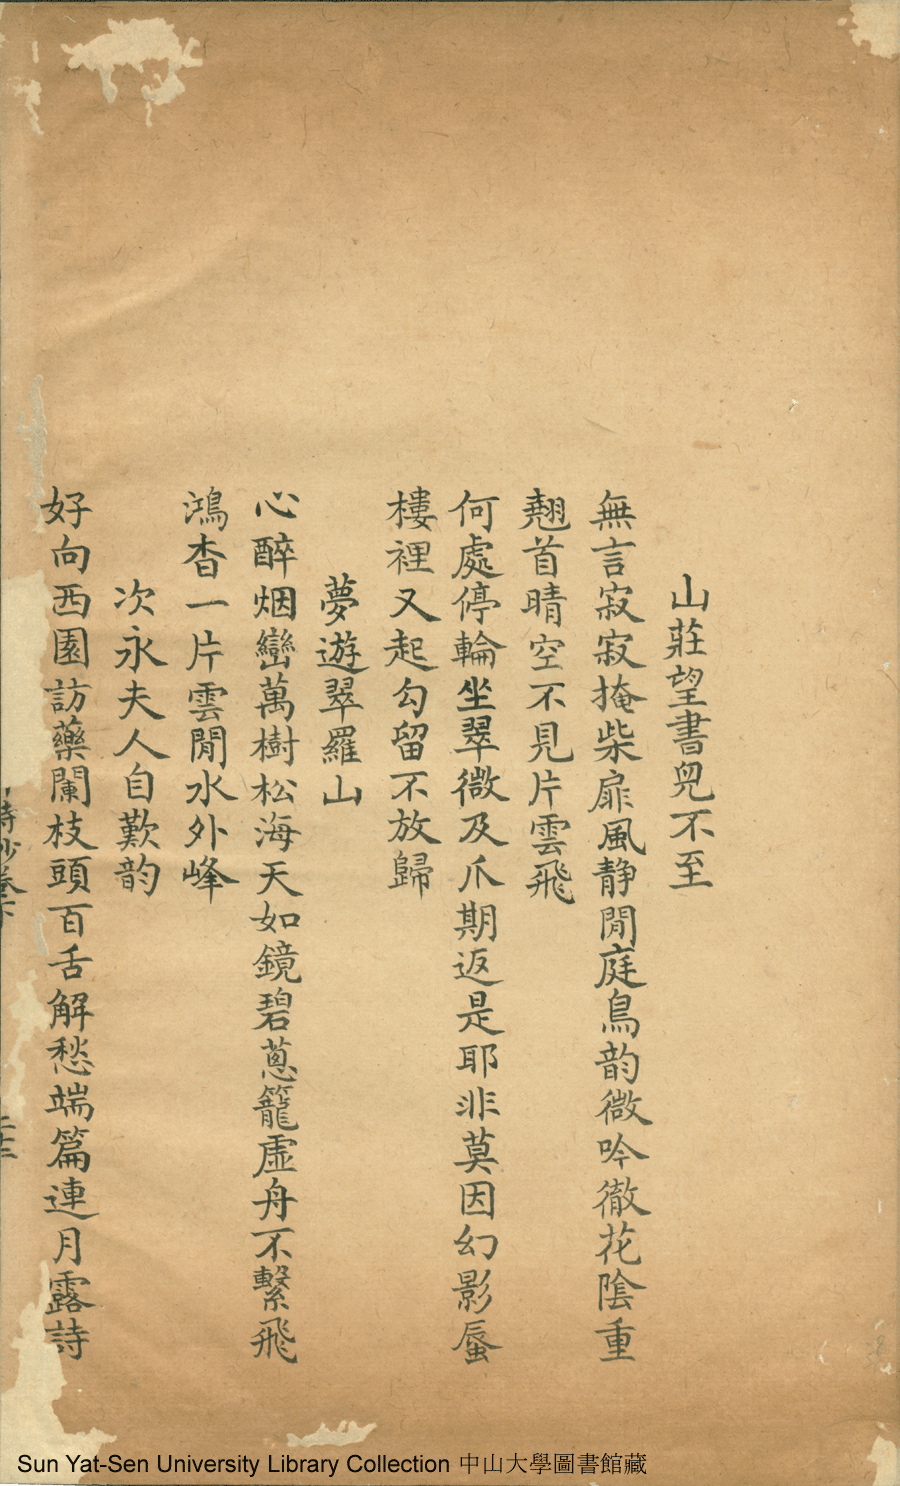 山莊望書兜不至
無言寂寂掩柴扉風静閒庭鳥韵微吟徹花陰重
翹首晴空不見片雲飛
何處停輪坐翠微及爪期返是耶非莫因幻影蜃
樓裡又起勾留不放歸
夢遊翠羅山
心醉烟巒萬樹松海天如鏡碧蔥籠虛舟不繫飛
鴻杳一片雲閒水外峰
次永夫人自歎韵
好向西園訪藥闌枝頭百舌解愁端篇連月露詩
詩鈔卷下
二十三
Sun Yat-Sen University Library Collection 中山大學圖書館藏